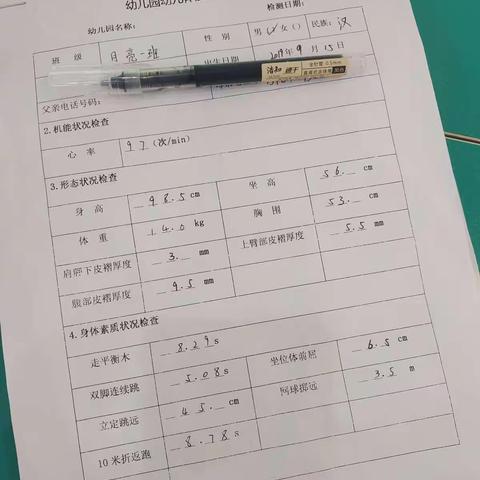 幼儿园幼儿
检测日期:
幼儿园名称:
班 级 月亮一班 性 别 男(✓)女() 民族: 汉
出生日期 2019年9月15日
洁和 速干 全针管 0.5mm
父亲电话号码:
2.机能状况检查
心 率 97(次/min)
3.形态状况检查
身 高 98.5 cm 坐 高 56. cm
体 重 14.0 kg 胸 围 53. cm
肩胛下皮褶厚度 3. mm 上臂部皮褶厚度 5.5 mm
腹部皮褶厚度 9.5 mm
4.身体素质状况检查
走平衡木 8.29 s
双脚连续跳 5.08 s 坐位体前屈 6.5 cm
立定跳远 45. cm 网球掷远 3.5 m
10米折返跑 8.78 s